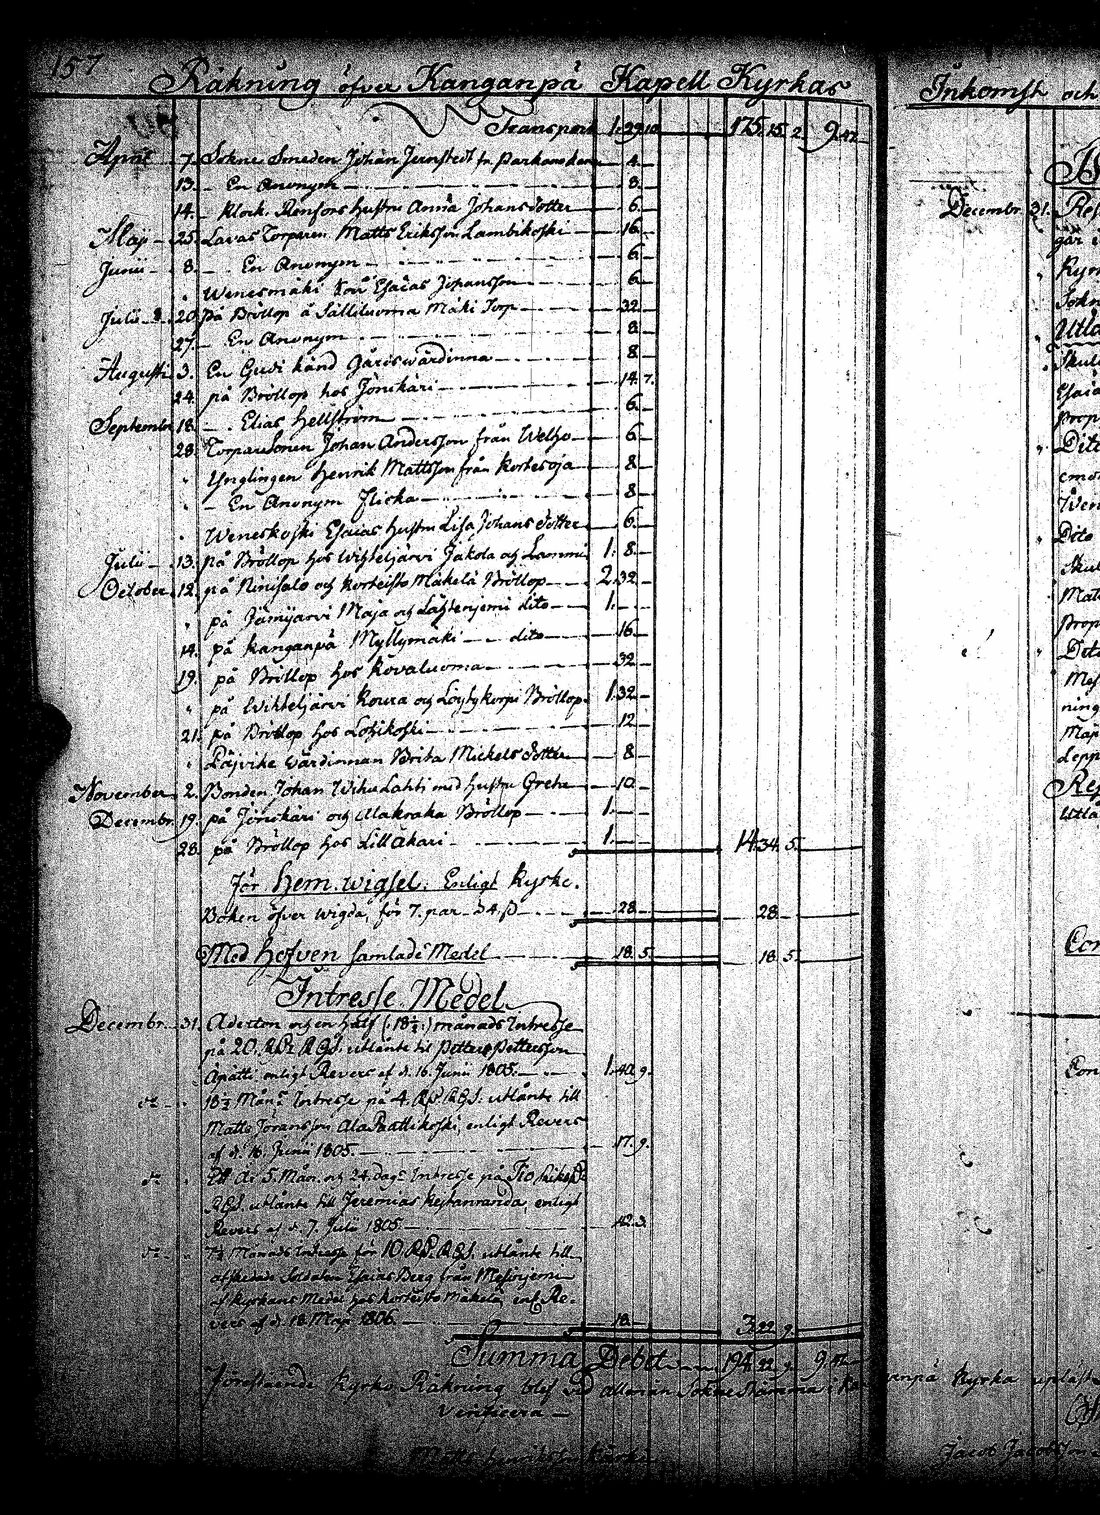 157
Räkning öfver Kanganpä Kapell Kyrkas
Transport 1. 29. 10 175. 15. 2. 9. 42.
April 7. Sokne Smeden Johan Jernstedt fr. 4.
13. En Anonym 8.
14. Klock. Renfors Hustru Anna Johansdotter 6.
Maji 25. Lavas Torparen Matts Eriksson Lambikoski 16.
Junii 8. En Anonym 6.
Wenesmäki Esaias Johansson 6.
Julii 20. på Bröllop å Sälliluoma Mäki Torp 32.
27. En Anonym 8.
Augusti 3. En Gudi känd Gårdswärdinna 8.
24. på Bröllop hos Jönikäri 14. 7.
Septembr 18. Elias Hellström 6.
28. Torparesonen Johan Andersson från Welho 6.
" Ynglingen Henrik Mattsson från Kortesoja 8.
" En Anonym Flicka 8.
" Weneskoski Esaias Hustru Lisa Johansdotter 6.
Julii 13. på Bröllop hos Wihteljärvi Jakola og Lammi 1. 8.
October 12. på Niinisalo og Korteisto Mäkelä Bröllop 2. 32.
" på Jämijärvi Maja og Lähtenjemi dito 1.
14. på Kanganpä Myllymäki dito 16.
19. på Bröllop hos Kovaluoma 32.
" på Wihteljärvi Koura og Löytykorpi Bröllop 1. 32.
21. på Bröllop hos Lohikoski 12.
" Päjvike Wärdinnan Brita Mickelsdotter 8.
November 2. Bonden Johan Wihu Lahti med Hustru Greta 10.
Decembr. 19. på Jönikäri og Alakraka Bröllop 1.
28. på Bröllop hos Lillåkari 1. 14. 34. 5.
För Hem.wigsel. Enligt Kyrko.
Boken öfver wigda, för 7. par à 4 ß 28. 28.
Med Hofven samlade Medel 18. 5. 18. 5.
Intresse Medel
Decembr. 31. Aderton og en half (18½) månads Intresse
på 20. RDr RGS. utlånte til Petter Pettersson
Apatti enligt Revers af d. 16. Junii 1805. 1. 40. 9.
do 18½ Månds Intresse på 4. RD RGS. utlånte till
Matts Göransson Ala Paattikoski, enligt Revers
af d. 16. Junii 1805. 17. 9.
do Ett År 5. Mån. og 24. dags Intresse på Tio
RGS. utlånte till Jeremias enligt
Revers af d. 7. Julii 1805. 42. 3.
do 7½ Månads Intresse för 10. RD. RGS. utlånte till
afskedade Soldaten Esaias Berg från
af Kyrkans Medel hos Korteisto Mäkelä, enl. Re-
vers af d. 18. Maji 1806. 18. 3. 22. 9.
Summa Debet 194. 22. 9. 9. 42.
Förestående Kyrko Räkning blef wid allmän Sokne Stämma i
Verificera
Matts Henriksson
Inkomst och
Decembr. 31.
går
Kyr
Sokn
Skul
Esaia
Prop
Wen
Dito
Skul
Matt
Prop
ning
Maji
Utlå
Con
Con
Kyrka uplä
Jacob Jacobsson